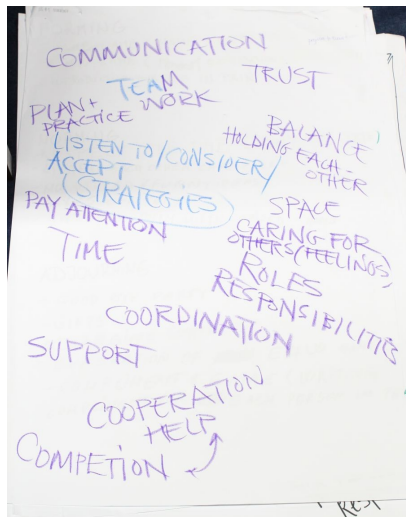 COMMUNICATION
TEAM
WORK
TRUST
PLAN +
PRACTICE
BALANCE
HOLDING EACH-
OTHER
LISTEN TO/CONSIDER/
ACCEPT
(STRATEGIES)
PAY ATTENTION
SPACE
TIME
CARING FOR
OTHERS (FEELINGS)
ROLES
RESPONSIBILITIES
COORDINATION
SUPPORT
COOPERATION
HELP
COMPETION